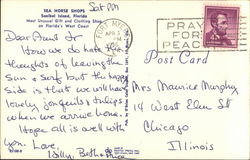 Sat PM
SEA HORSE SHOPS
Sanibel Island, Florida
Most Unusual Gift and Clothing Shop
on Florida's West Coast
Dear Aunt Jr
How we do hate the
thoughts of leaving the
sun & surf but the happy
side is that we will have
lovely jonquils & tulips
when we arrive home.
Hope all is well with
you. Love,
Billy, Beth &
FORT MYERS
APR
PRAY
FOR
PEACE
Post Card
Mrs Maurice Murphy
14 West Elm St
Chicago
Illinois